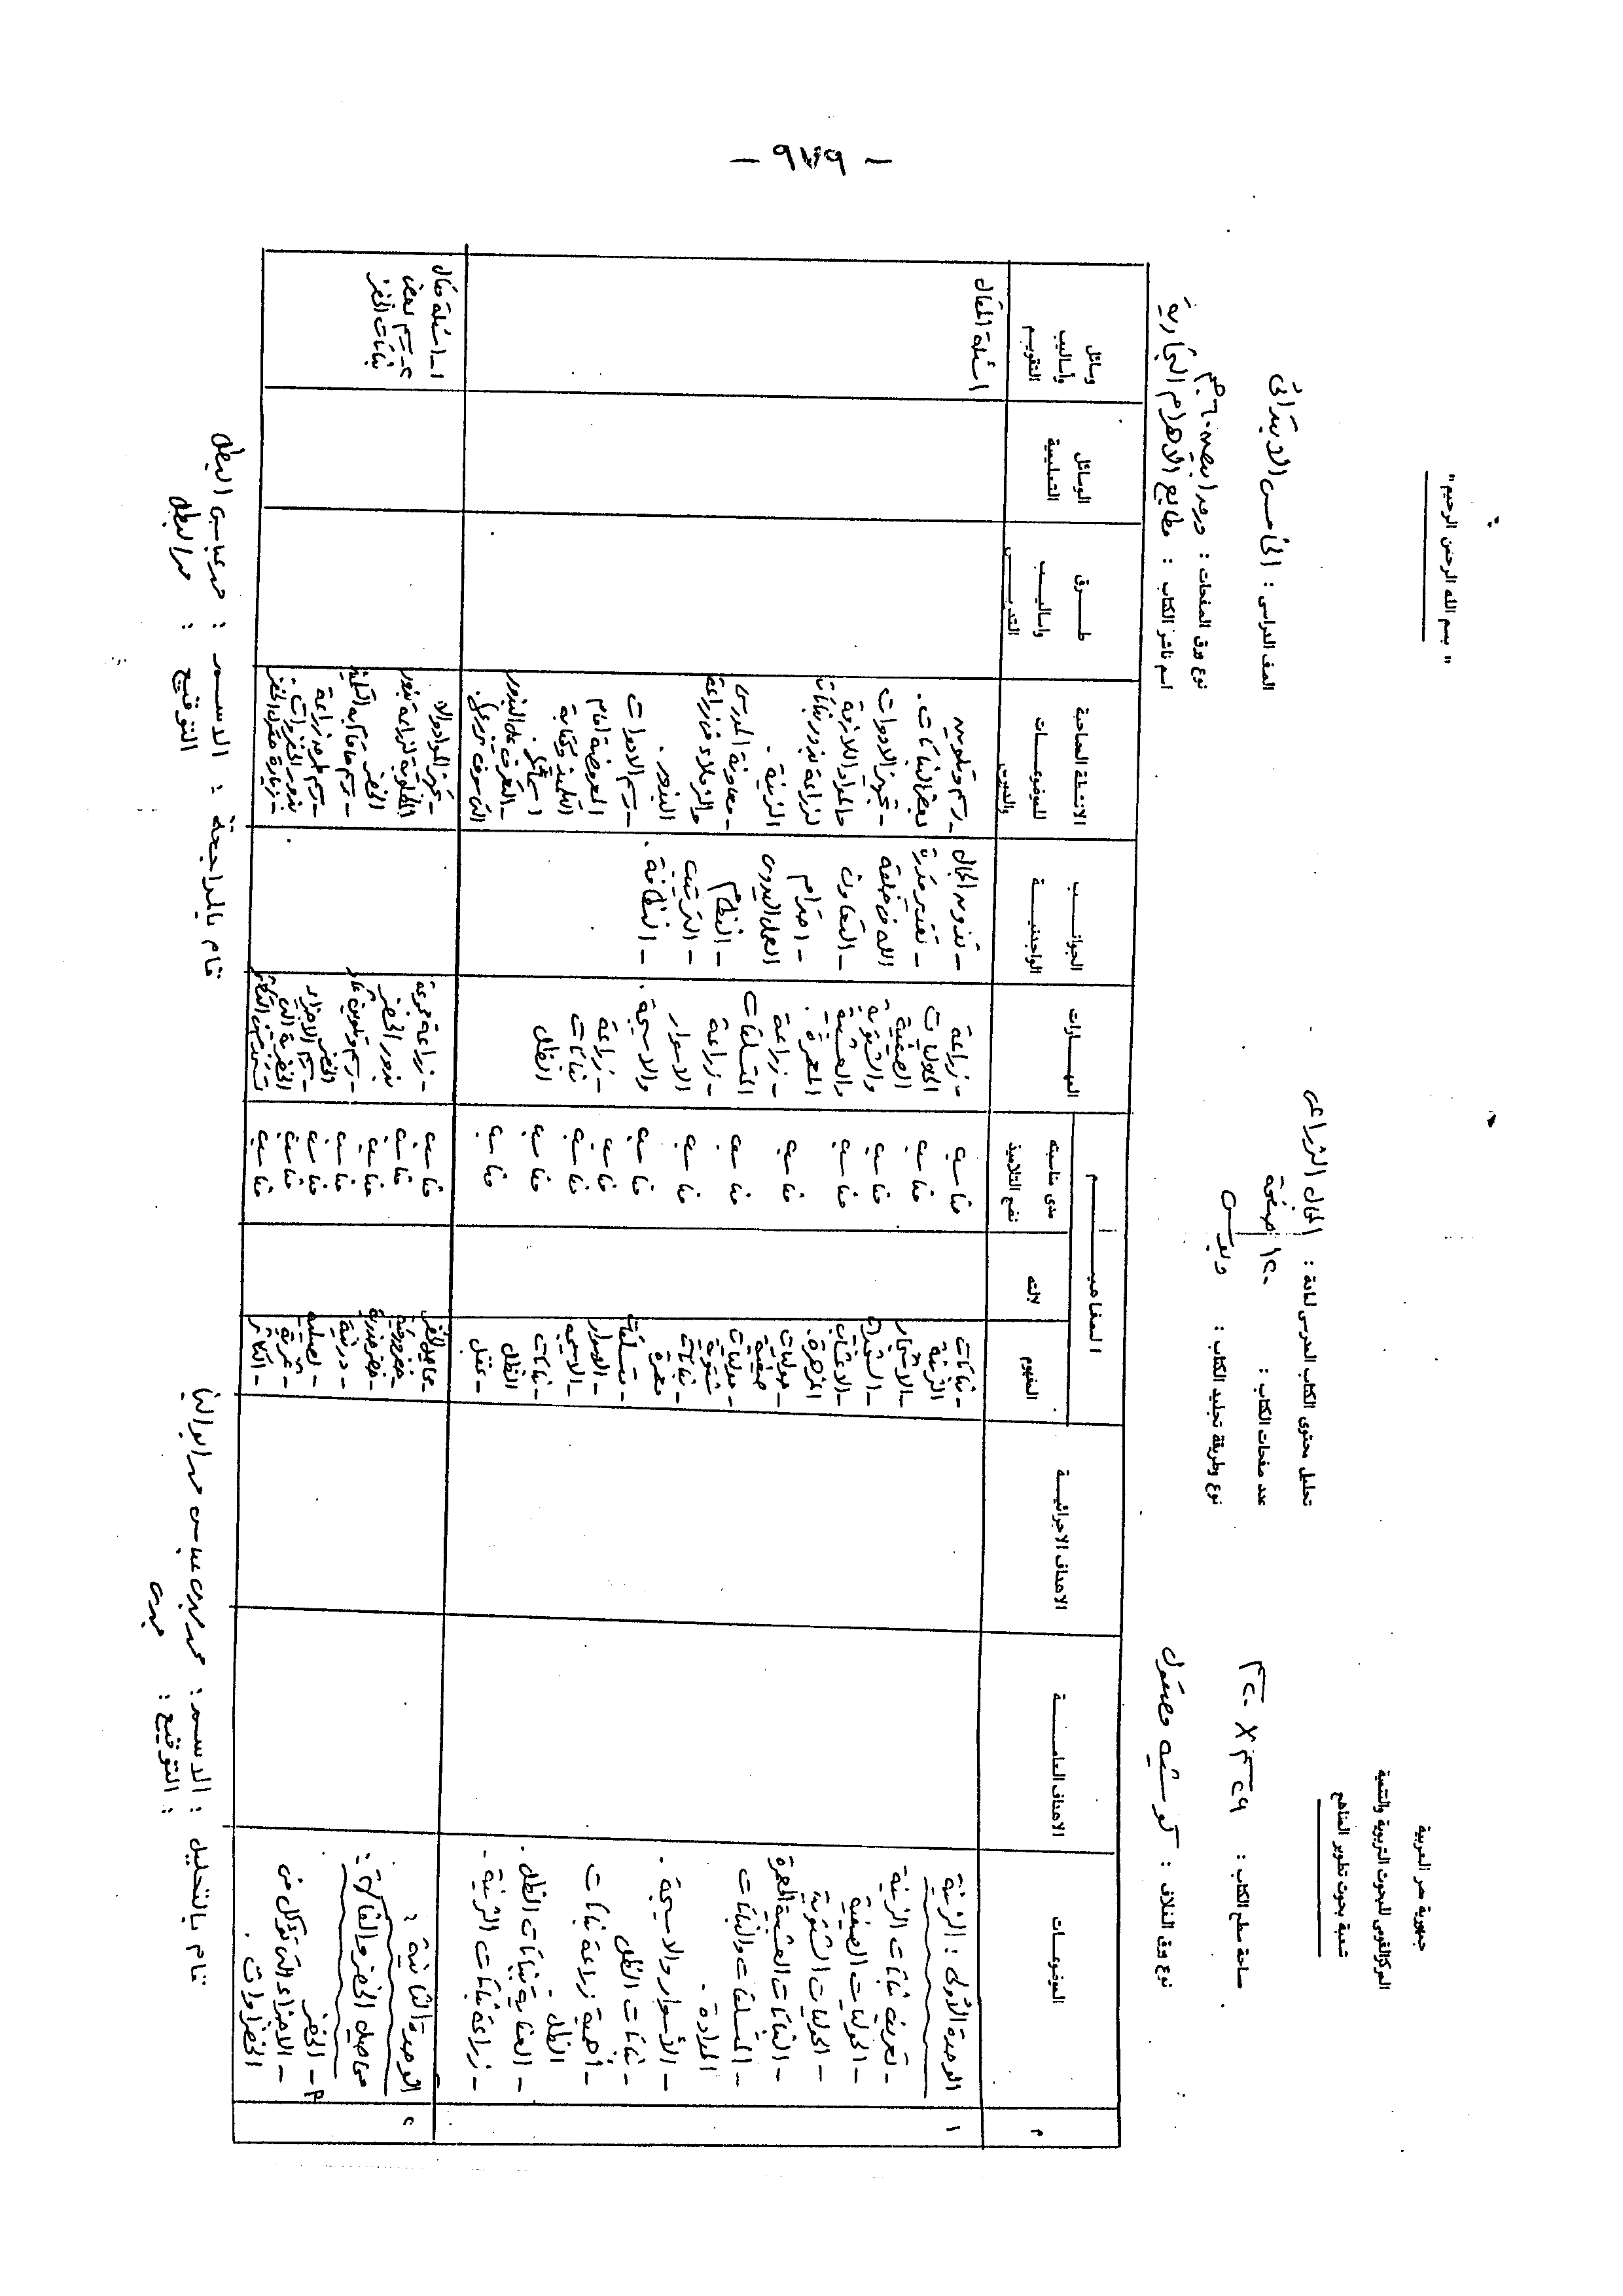 - ٩٧٩ -
" بسم الله الرحمن الرحيم "
جمهورية مصر العربية
المركز القومى للبحوث التربوية والتنمية
شعبة بحوث تطوير المناهج
تحليل محتوى الكتاب المدرسى لمادة : المجال الزراعى
الصف الدراسى : الخامس الابتدائى
مساحة سطح الكتاب :
عدد صفحات الكتاب : ١٢٠ صفحة
نوع ورق الصفحات : ورق أبيض ٦٠ جم
نوع ورق الغلاف : كوشيه مصقول
نوع وطريقة تجليد الكتاب : دبوس
اسم ناشر الكتاب : مطابع الأهرام التجارية
م
الموضوعات
الاهداف العامة
الاهداف الاجرائية
المفاهيم
المفهوم
دلالته
مدى مناسبته نضج التلاميذ
المهارات
الجوانب الوجدانية
الانشطة المصاحبة للموضوعات والدروس
طرق واساليب التدريس
الوسائل التعليمية
وسائل وأساليب التقويم
١
الوحدة الأولى : الزينة
- تعريف نباتات الزينة
- الحوليات الصيفية
- الحوليات الشتوية
- النباتات العشبية المعمرة
- المتسلقات والنباتات المدادة .
- الأسوار والاسيجة .
- نباتات الظل
- أهمية زراعة نباتات الظل .
- العناية بنباتات الظل .
- زراعة نباتات الزينة .
- نباتات الزينة
- الاشجار
- الشجيرات
- الاعشاب المزهرة .
- حوليات صيفية
- حوليات شتوية
- نباتات معمرة
- متسلقات
- الاسوار
- الاسيجة
- نباتات الظل
- عقل
مناسب
مناسب
مناسب
مناسب
مناسب
مناسب
مناسب
مناسب
مناسب
مناسب
مناسب
مناسب
- زراعة الحوليات الصيفية والشتوية والعشبية المعمرة .
- زراعة المتسلقات
- زراعة الاسوار والاسيجة .
- زراعة نباتات الظل
- تذوق الجمال
- تقدير قدرة الله فى خلقه
- التعاون
- احترام العمل اليدوى
- النظام
- الترتيب
- النظافة .
- رسم وتلوين بعض النباتات .
- تجهيز الادوات والمواد اللازمة لزراعة بذور نباتات الزينة .
- معاونة المدرس والزملاء فى زراعة البذور .
- رسم الادوات المعروضة امام التلميذ وكتابة اسمائها .
- التعرف على البذور التى سوف تزرعها .
اسئلة المقال
٢
الوحدة الثانية :
محاصيل الخضر والفاكهة :
٢ - الخضر
- الاجزاء التى تؤكل من الخضراوات .
- محاصيل الخضر
- خضر ورقية
- خضر جذرية
- درنية
- بصلية
- ثمرية
- التكاثر
مناسب
مناسب
مناسب
مناسب
مناسب
مناسب
مناسب
- زراعة مجموعة بذور الخضر
- رسم الاجزاء الخضرية التى
- تجهيز المواد والادوات المطلوبة لزراعة بذور الخضر
- رسم ما قام به التلميذ
١ - اسئلة مقال
٢ - رسم لبعض نباتات الخضر
قام بالتحليل : الاسم :
التوقيع :
قام بالمراجعة : الاسم :
التوقيع :